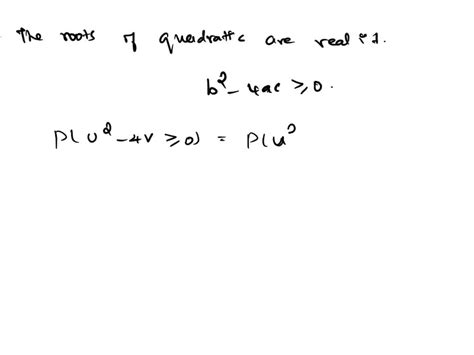 The roots of quadratic are real if.
b² - 4ac ≥ 0.
P( U² - 4V ≥ 0) = P( U²